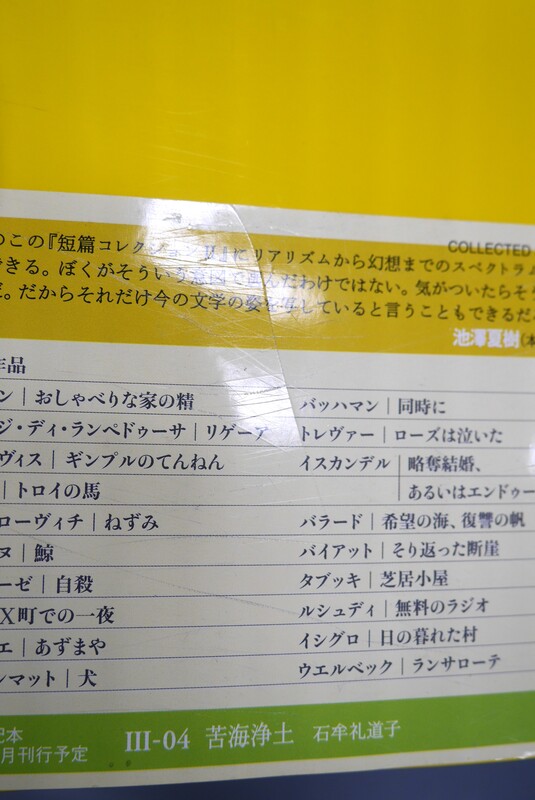 COLLECTED
のこの『短篇コレクションⅡ』にリアリズムから幻想までのスペクトラム
できる。ぼくがそういう意図で選んだわけではない。気がついたらそう
だ。だからそれだけ今の文学の姿を写していると言うこともできるだろ
池澤夏樹(本
作品
ン|おしゃべりな家の精
ジ・ディ・ランペドゥーサ|リゲーア
ヴィス|ギンプルのてんねん
|トロイの馬
ローヴィチ|ねずみ
ヌ|鯨
ーゼ|自殺
X町での一夜
エ|あずまや
ンマット|犬
バッハマン|同時に
トレヴァー|ローズは泣いた
イスカンデル|略奪結婚、
あるいはエンドゥー
バラード|希望の海、復讐の帆
バイアット|そり返った断崖
タブッキ|芝居小屋
ルシュディ|無料のラジオ
イシグロ|日の暮れた村
ウエルベック|ランサローテ
配本
月刊行予定
III-04 苦海浄土 石牟礼道子